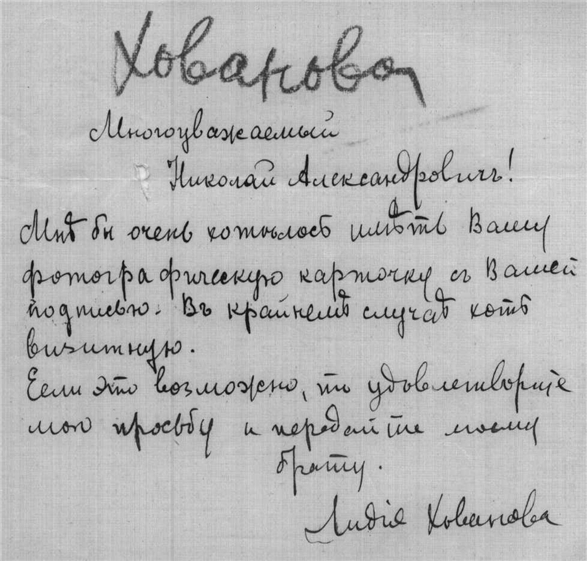 Хованова
Многоуважаемый
Николай Александровичъ!
Мнѣ бы очень хотѣлось имѣть Вашу
фотографическую карточку съ Вашей
подписью. Въ крайнемъ случаѣ хоть
визитную.
Если это возможно, то удовлетворите
мою просьбу и передайте моему
брату.
Лидія Хованова